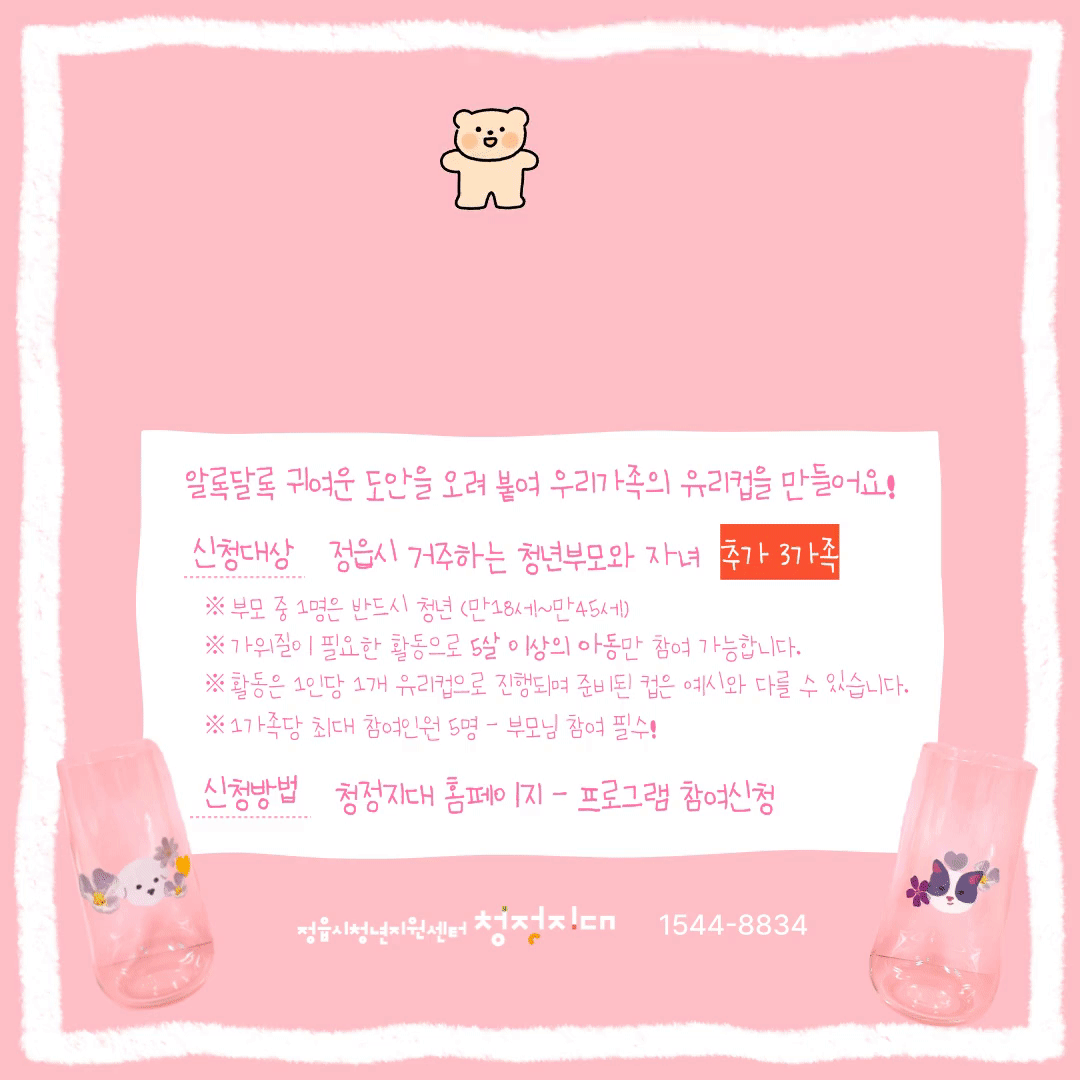 알록달록 귀여운 도안을 오려 붙여 우리가족의 유리컵을 만들어요!
신청대상 정읍시 거주하는 청년부모와 자녀 추가 3가족
※ 부모 중 1명은 반드시 청년 (만18세~만45세)
※ 가위질이 필요한 활동으로 5살 이상의 아동만 참여 가능합니다.
※ 활동은 1인당 1개 유리컵으로 진행되며 준비된 컵은 예시와 다를 수 있습니다.
※ 1가족당 최대 참여인원 5명 - 부모님 참여 필수!
신청방법 청정지대 홈페이지 - 프로그램 참여신청
정읍시청년지원센터 청정지대 1544-8834